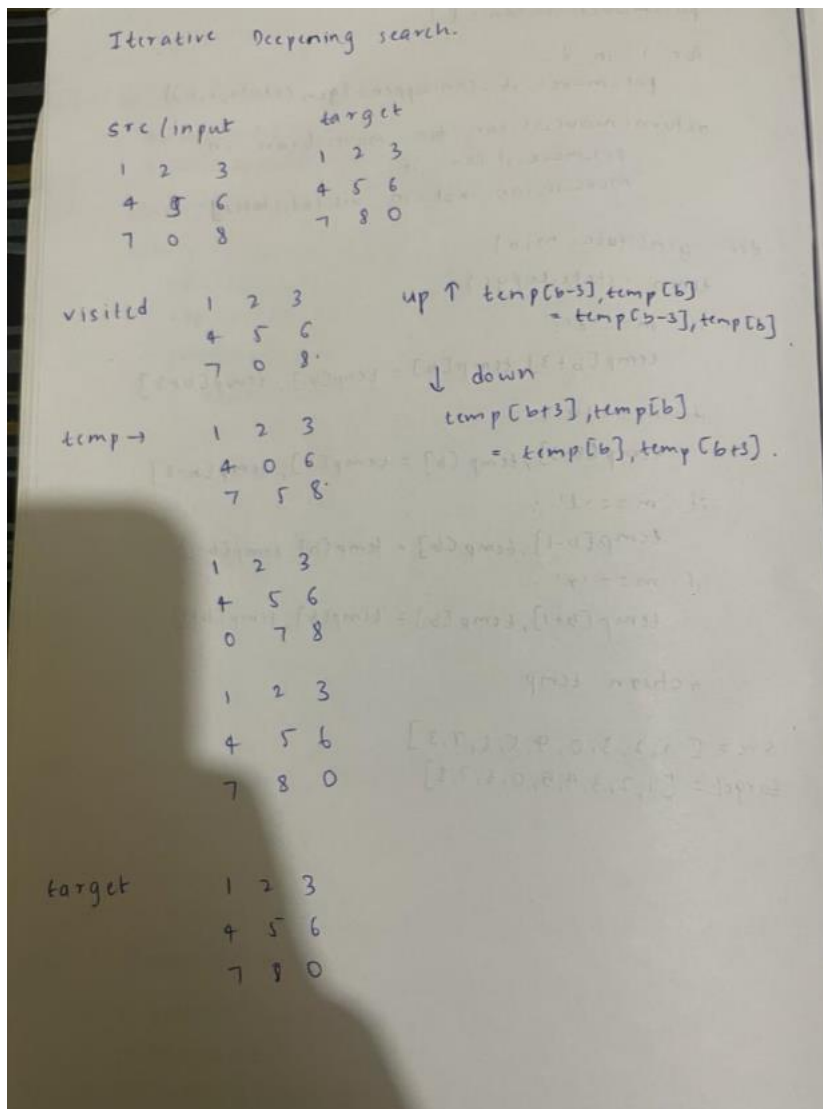 Iterative Deepening search.
src/input target
1 2 3 1 2 3
4 5 6 4 5 6
7 0 8 7 8 0
visited 1 2 3
4 5 6
7 0 8.
up ↑ temp[b-3], temp[b]
= temp[b-3], temp[b]
↓ down
temp[b+3], temp[b]
= temp[b], temp[b+3].
temp → 1 2 3
4 0 6
7 5 8.
1 2 3
4 5 6
0 7 8
1 2 3
4 5 6
7 8 0
target 1 2 3
4 5 6
7 8 0